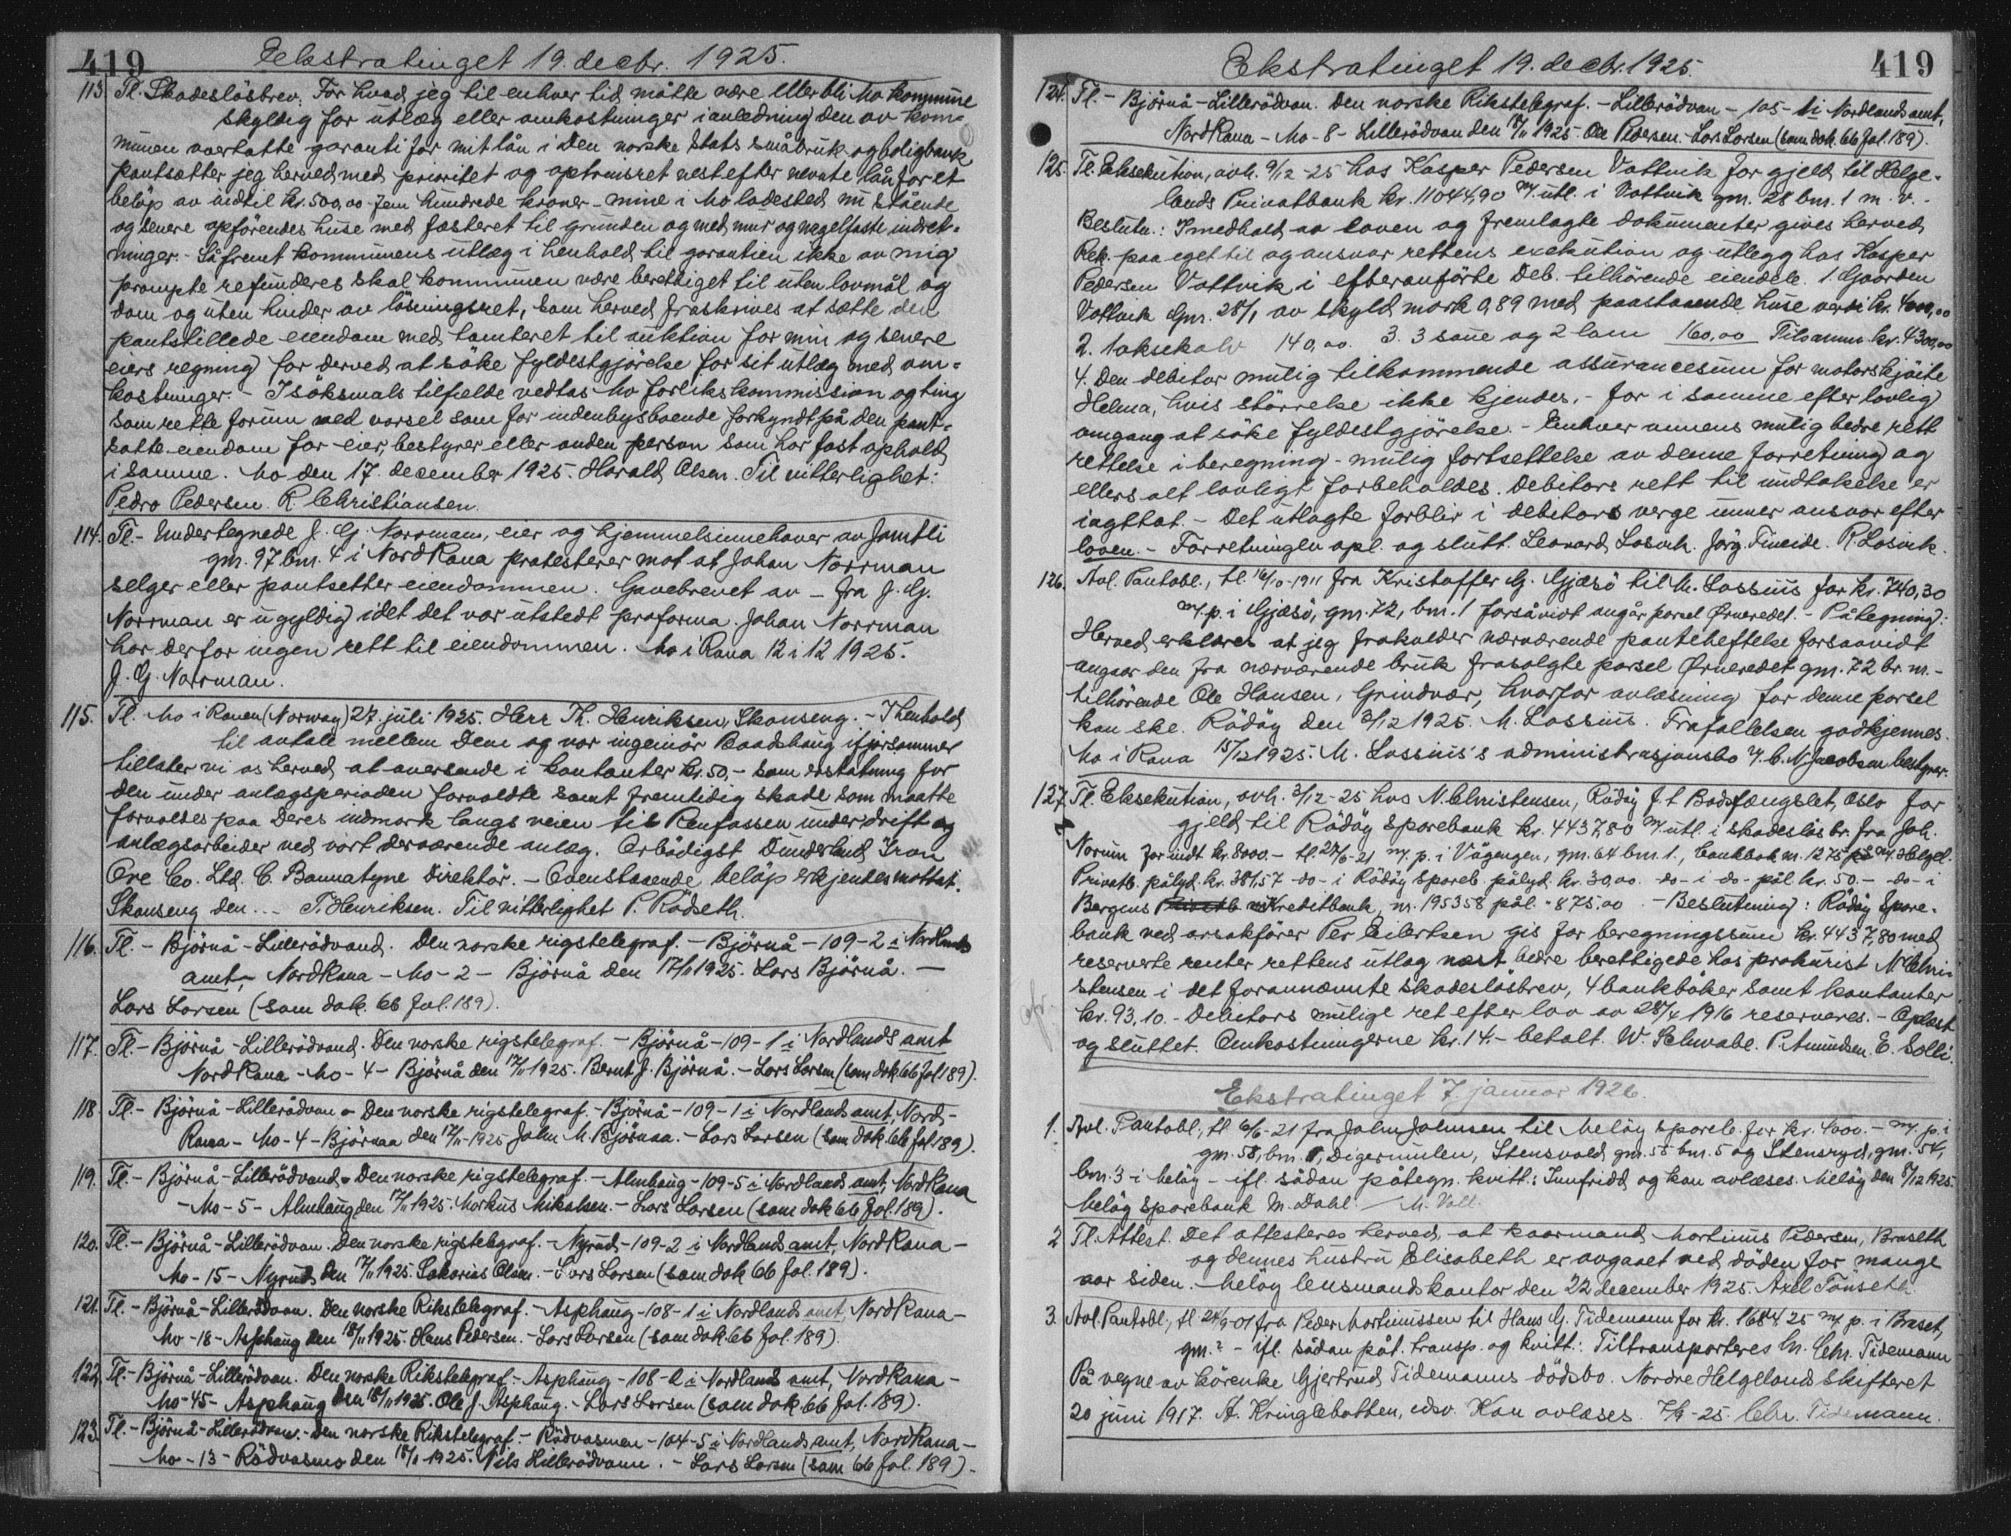 419
Ekstratinget 19. decbr. 1925.
113. Tl. Skadeslösbrev. For hvad jeg til enhver tid måtte være eller bli Mo kommune
skyldig for utlæg eller omkostninger i anledning den av kom=
munen overtatte garanti for mit lån i Den norske Stats småbruk og boligbank
pantsætter jeg herved med prioritet og optrinsret næst efter nevnte lån for et
beløp av indtil kr. 500,00 fem hundrede kroner - mine i Mo ladested nu stående
og senere opförendes huse med fæsteret til grunden og med mur og nagelfaste indret=
ninger. - Såfremt kommunens utlæg i henhold til garantien ikke av mig
prompte refunderes skal kommunen være berettiget til uten lovmål og
dom og uten hinder av lösningsret, som herved fraskrives at sætte den
pantstillede eiendom med tomteret til auktion for min og senere
eiers regning for derved at söke fyldestgjörelse for sit utlæg med om=
kostninger. - I söksmals tilfælde vedtas Mo forlikskommission og ting
som rette forum med varsel som for indenbysboende forkyndt på den pant=
satte eiendom for eier, bestyrer eller anden person som har fast ophold
i samme. Mo den 17. december 1925. Harald Olsen. Til vitterlighet:
Pedro Pedersen. R Christiansen.
114. Tl. - Undertegnede J. G. Norrman, eier og hjemmelsinnehaver av Jamtli
gm. 97 bm. 4 i Nordrana protesterer mot at Johan Norrman
selger eller pantsetter eiendommen. Gavebrevet av - fra J. G.
Norrman er ugyldig idet det var utstedt proforma. Johan Norrman
har derfor ingen rett til eiendommen. Mo i Rana 12 i 12 1925.
J. G. Norrman.
115. Tl. Mo i Ranen (Norway) 27. juli 1925. Herr Th. Henriksen, Skonseng. - I henhold
til avtale mellem Dem og vor ingeniör Baadshaug ifjorsommer
tillater vi os herved at oversende i kontanter kr. 50,- som erstatning for
den under anlægsperioden forvoldte samt fremtidig skade som maatte
forvoldes paa Deres indmark langs veien til Renfossen under drift og
anlægsarbeider ved vort derværende anlæg. Ærbödigst Dunderland Iron
Ore Co. Ltd. C. Bannatyne Direktör. - Ovenstaaende belöp erkjendes mottat.
Skonseng den ... T. Henriksen. Til vitterlighet P. Rödseth.
116. Tl. - Björnå - Lillerödvand. Den norske rigstelegraf. - Björnå - 109 - 2 i Nordlands
amt, Nordrana - Mo - 2 - Björnå den 17/11 1925. Lars Björnå. -
Lars Larsen (som dok. 66 fol. 189).
117. Tl. - Björnå - Lillerödvand. Den norske rigstelegraf. - Björnå - 109 - 1 i Nordlands amt
Nordrana - Mo - 4 - Björnå den 17/11 1925. Bernt J. Björnå. - Lars Larsen (som dok. 66 fol. 189).
118. Tl. - Björnå - Lillerödvan - Den norske rigstelegraf. - Björnå - 109 - 1 i Nordlands amt, Nord-
Rana - Mo - 4 - Björnaa den 17/11 - 1925 John M. Björnaa. - Lars Larsen (som dok. 66 fol 189).
119. Tl. - Björnå - Lillerödvand. Den norske rigstelegraf. - Almhaug - 109 - 5 i Nordlands amt, Nordrana
- Mo - 5 - Almhaug den 17/11 1925. Markus Mikalsen. - Lars Larsen (som dok 66 fol. 189).
120. Tl. - Björnå - Lillerödvan. Den norske rigstelegraf. - Nyrud - 109 - 2 i Nordlands amt, Nordrana -
Mo - 15 - Nyrud den 17/11 1925. Sakarias Olsen. - Lars Larsen (som dok 66 fol. 189).
121. Tl. - Björnå - Lillerödvan. Den norske Rikstelegraf. - Asphaug - 108 - 1 i Nordlands amt, Nordrana -
Mo - 18 - Asphaug den 18/11 1925 Hans Pedersen. - Lars Larsen (som dok. 66 fol. 189).
122. Tl. - Björnå - Lillerödvan. Den norske Rikstelegraf. - Asphaug - 108 - 2 i Nordlands amt, Nordrana -
Mo - 45 - Asphaug den 18/11 1925. Ole J. Asphaug. - Lars Larsen (som dok 66 fol. 189).
123. Tl. - Björnå - Lillerödvan. - Den norske Rikstelegraf. - Rödvasmen - 104 - 5 i Nordlands amt, Nordrana -
Mo - 13 - Rödvasmo den 18/11 1925. Nils Lillerödvann. - Lars Larsen (som 66 fol. 189).
419
Ekstratinget 19. decbr. 1925.
124. Tl. - Björnå - Lillerödvan. Den norske Rikstelegraf. - Lillerödvan - 105 - 1 i Nordlands amt,
Nordrana - Mo - 8 - Lillerödvan den 18/11 1925. Ole Pedersen. - Lars Larsen (som dok. 66 fol. 189).
125. Tl. Eksekution, avh. 9/12 - 25 hos Kasper Pedersen Vattvik for gjeld til Helge-
lands Privatbank kr. 11044,90 m/ utl. i Vattvik gm. 28 bm. 1 m. v. -
Beslutn.: I medhold av loven og fremlagte dokumenter gives herved
Rek. paa eget til og ansvar rettens exekution og utlegg hos Kasper
Pedersen Vattvik i efteranförte deb. tilhörende eiendele. 1. Gaarden
Vattvik Gnr. 28/1 av skyld mark 0,89 med paastaaende huse verdi kr. 4000,00
2. 1 oksekalv 140,00. 3. 3 saue og 2 lam 160,00 Tilsamm. kr. 4300,00
4. Den debitor mulig tilkommende assurancesum for motorskjöite
Helma, hvis störrelse ikke kjendes, - for i samme efter lovlig
omgang at söke fyldestgjörelse. - Enhver annens mulig bedre rett
rettelse i beregning - mulig fortsettelse av denne forretning og
ellers alt lovligt forbeholdes. Debitors rett til undtakelse er
iagttat. - Det utlagte forblir i debitors verge under ansvar efter
loven. - Forretningen opl. og slutt. Leonard Losvik. Jörg. Fineide. R. Losvik.
126. Avl. Pantobl., tl. 16/10 - 1911 fra Kristoffer G. Gjæsö til M. Lossius for kr. 740,30
m/ p. i Gjæsö, gm. 72, bm. 1 forsåvidt angår parcel Ørneredet. - Påtegning:
Herved erklæres at jeg frafalder nærværende panteheftelse forsaavidt
angaar den fra nærværende bruk frasolgte parsel Ørneredet gm. 72 br. m. -
tilhörende Ole Hansen, Grindvær, hvorfor avlæsning for denne parsel
kan ske. Rödöy den 3/12 1925. M. Lossius. Frafallelsen godkjennes.
Mo i Rana 15/12 1925. M. Lossius's administrasjonsbo v/ C. N. Jacobsen bestyrer.
127. Tl. Eksekution, avh. 3/12 - 25 hos N. Christensen, Rödöy f. t Bodsfængslet, Oslo for
gjeld til Rödöy sparebank kr. 4437,80 m/ utl. i skadeslösbr. fra Joh.
Norum for indt. kr. 8000. - tl. 27/6 - 21 m/ p. i Vågengen, gm. 64 bm. 1., bankbok nr. 1275 på m/ Helgel.
Privatb. pålyd. kr. 381,57 - do - i Rödöy spareb. pålyd. kr. 30,00. do - i do - pål kr. 50. - do - i
Bergens Kreditbank, nr. 195358 pål. - 875,00. - Beslutning: Rödöy Spare-
bank ved orsakförer Per Eilertsen gis for beregningssum kr. 4437,80 med
reserverte renter rettens utlæg næst bedre berettigede hos prokurist N. Chri-
stensen i det forannævnte skadeslösbrev, 4 bankböker samt kontanter
kr. 93,10. - Debitors mulige ret efter lov av 28/4 1916 reserveres. - Oplæst
og sluttet. Omkostningerne kr. 14. - betalt. W. Schwabe. P. Amundsen. E. Solli.
Ekstratinget 7. januar 1926.
1. Avl. Pantobl., tl 6/6 - 21 fra John Johnsen til Meløy spareb. for kr. 4000. - m/ p. i
gm. 58, bm. 1, Digermulen, Stensvold gm. 55 bm. 5 og Stensryd, gm. 54,
bm. 3 i Meløy - ifl. sådan påtegn. kvitt.: Innfridd og kan avlæses. Meløy den 8/12 1925.
Meløy Sparebank M. Dahl. M. Vall.
2. Tl. Attest. Det attesteres herved at kaarmand Martinus Pedersen, Braseth
og dennes hustru Elisabeth er avgaaet ved döden for mange
aar siden. - Meløy lensmandskontor den 22 december 1925. Axel Tönseth.
3. Avl. Pantobl., tl 24/9 - 01 fra Peder Martinussen til Hans G. Tidemann for kr. 1684 25 m/ p. i Braset,
gm. ? - ifl. sådan påt. transp. og kvitt.: Tiltransporteres hr. Chr. Tidemann
På vegne av Cörenke Gjertrud Tidemanns dödsbo. Nordre Helgeland skifteret
20 juni 1917. A. Kringlebotten, edsv. Kan avlæses. 7/9 - 25. Chr. Tidemann.